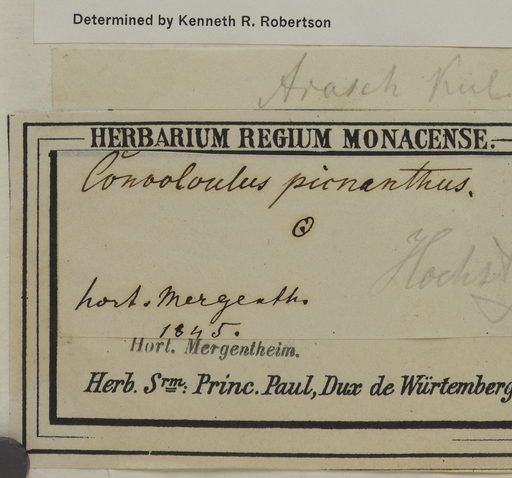 Determined by Kenneth R. Robertson
Arasch
HERBARIUM REGIUM MONACENSE.
Convolvulus picnanthus.
Hochst
hort. Mergenth.
1845.
Hort. Mergentheim.
Herb. Srm: Princ. Paul, Dux de Würtemberg